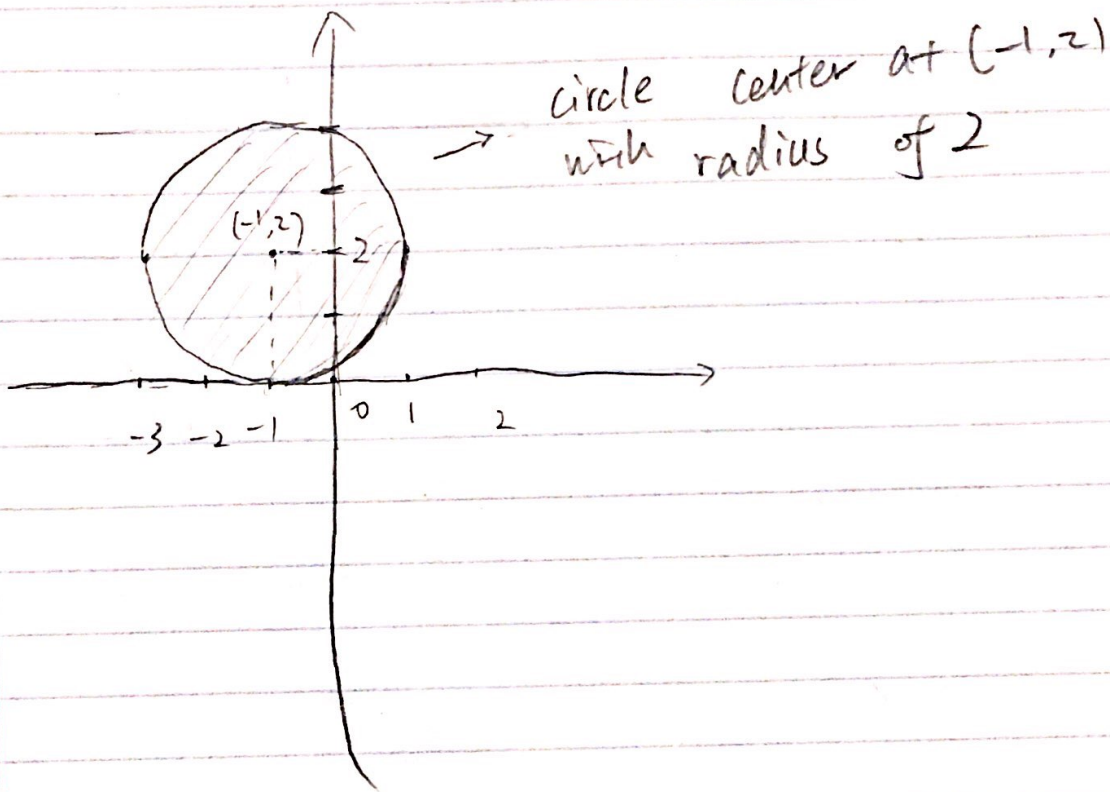 circle center at (-1,2)
with radius of 2
(-1,2)
2
-3 -2 -1 0 1 2